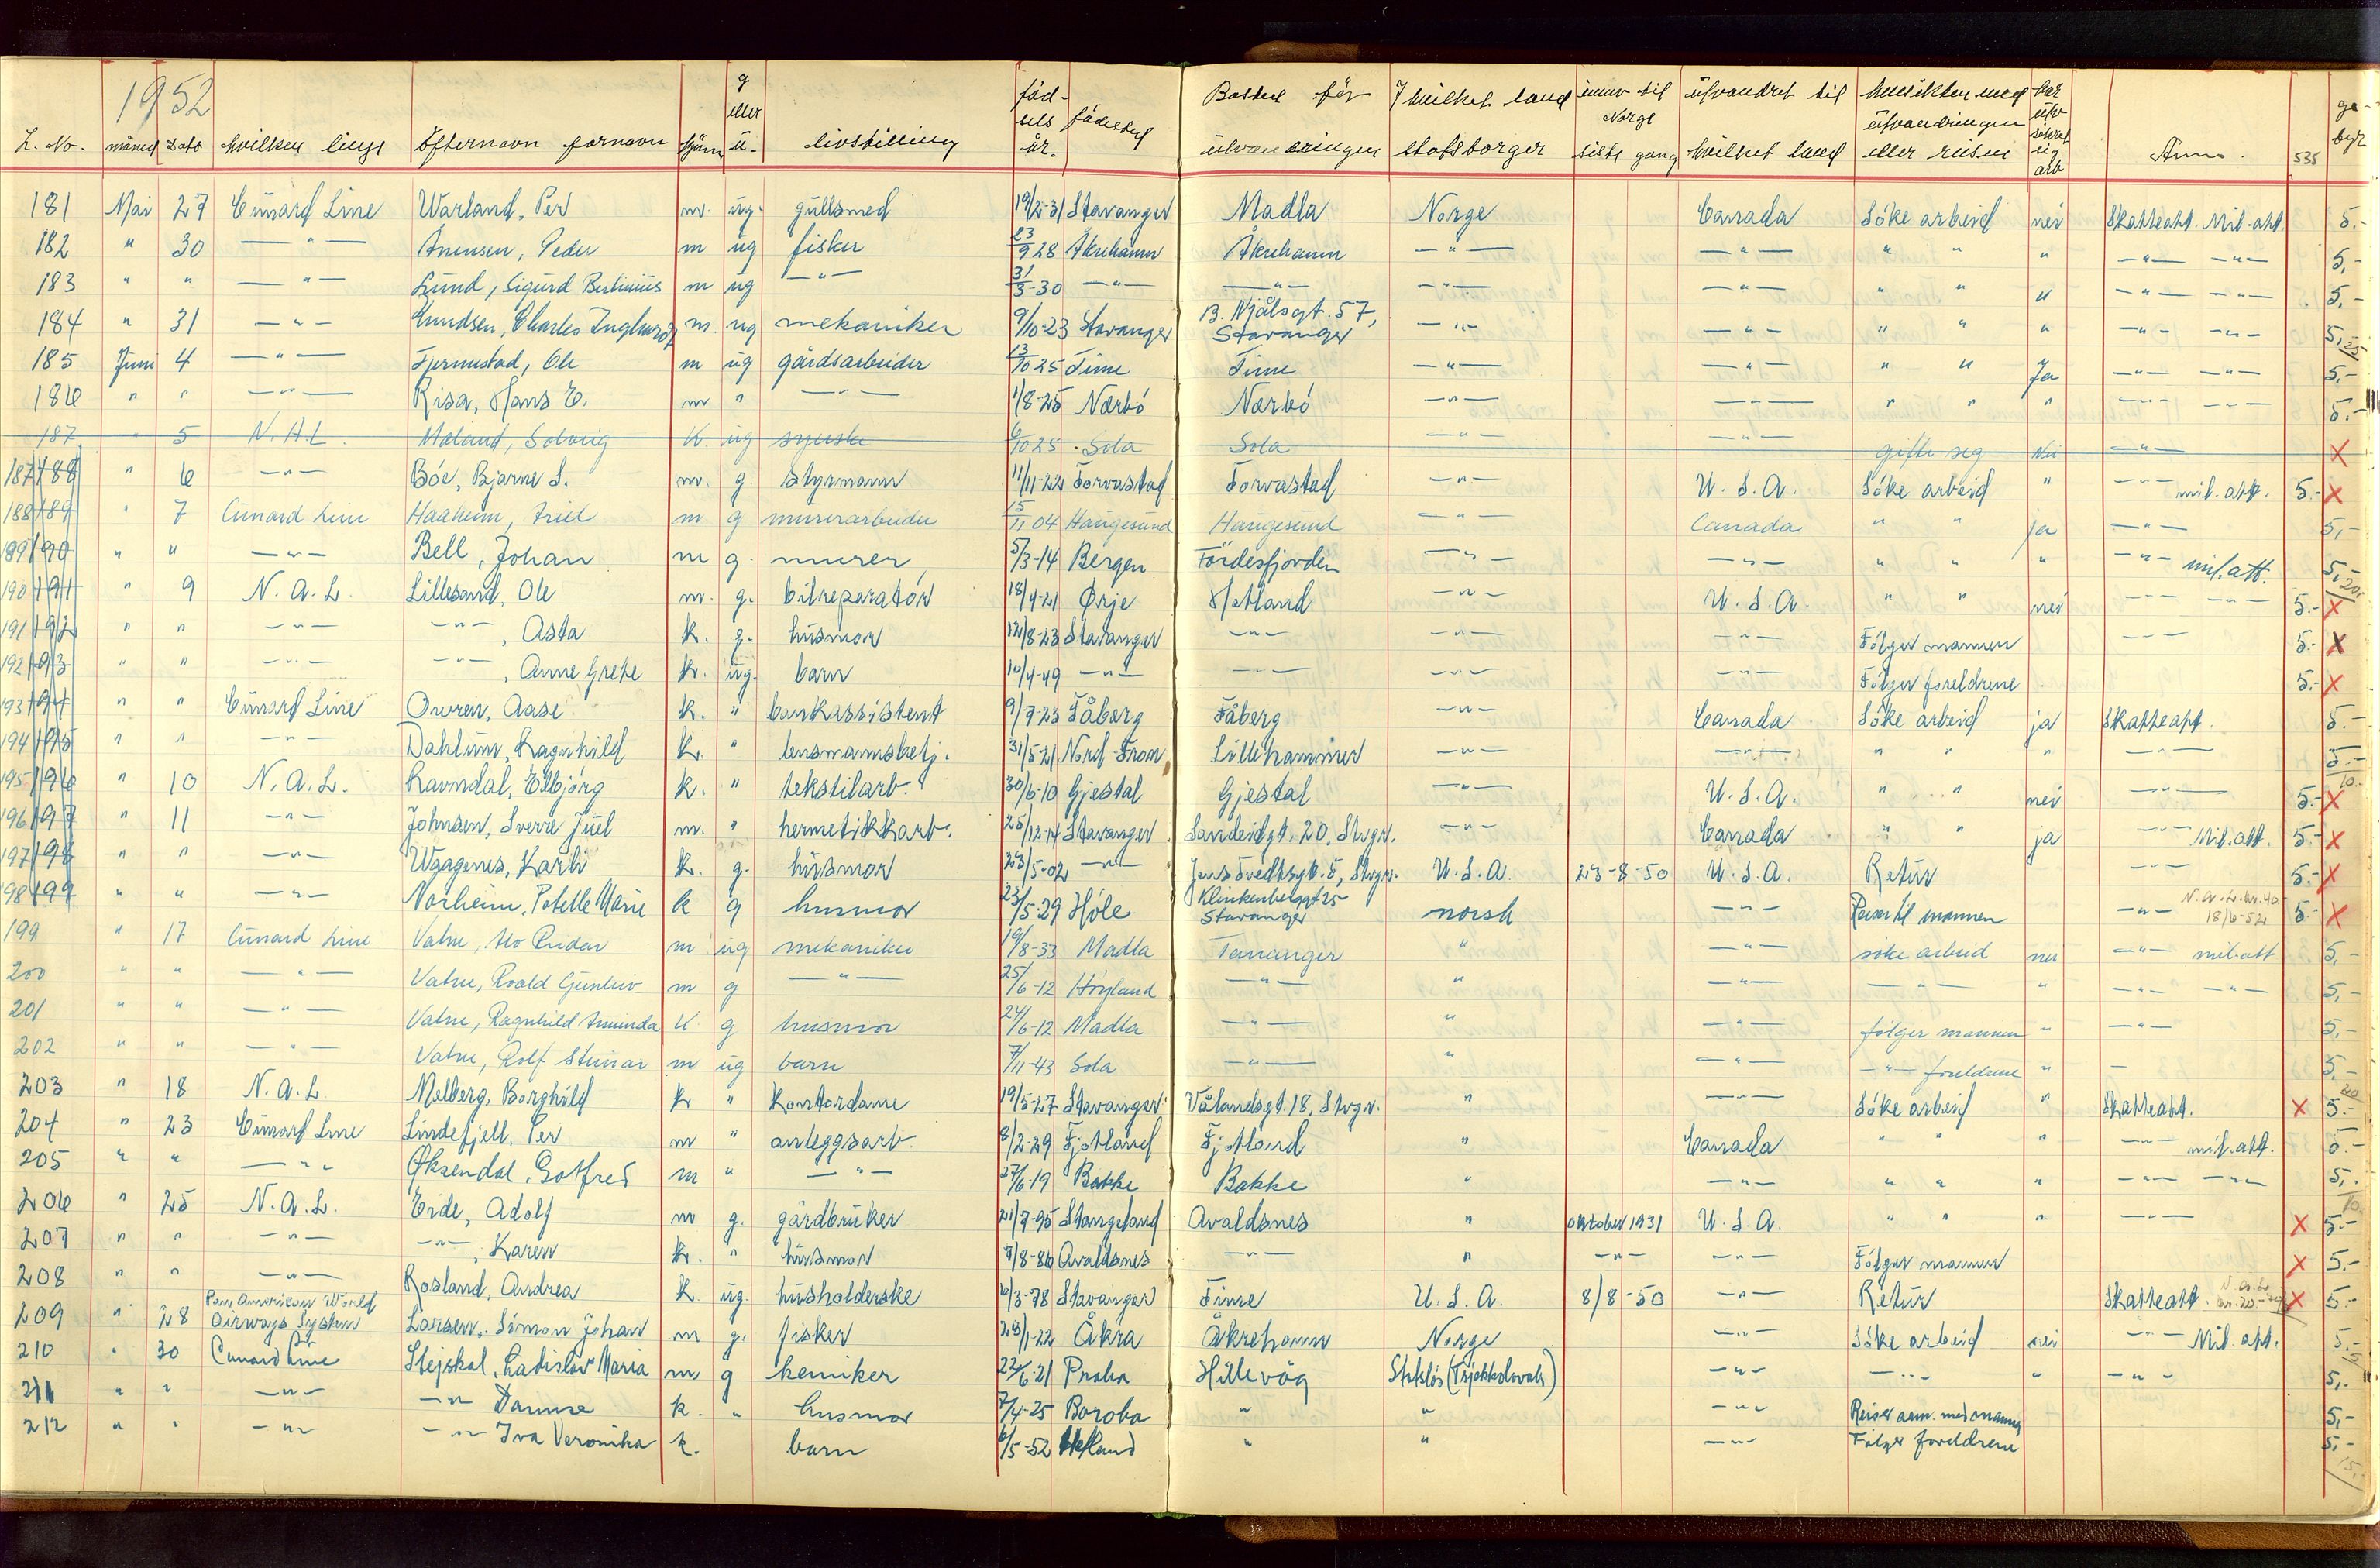 1952
L. No. måned dato hvilken linje Efternavn fornavn kjønn g eller u. livstilling fød- sels år. fødested Bosted før utvandringen I hvilket land statsborger innv til Norge siste gang utvandret til hvilket land hensikten med utvandringen eller reisen har utv sikret sig arb Anm. 535 ge- byr
181 Mai 27 Cunard Line Warland, Per m. ug. gullsmed 19/2-31 Stavanger Madla Norge Canada Söke arbeid nei Skatteatt. Mil. att. 5.-
182 " 30 —"— Ånensen, Peder m ug fisker 23/9 28 Åkrehamn Åkrehamn —"— —"— " " " —"— —"— 5,-
183 " " —"— Lund, Sigurd Bertinius m ug —"— 31/3-30 —"— —"— —"— —"— " " " —"— —"— 5,-
184 " 31 —"— Knudsen, Charles m. ug mekaniker 9/10-23 Stavanger B. Njålsgt. 57, Stavanger —"— —"— " " " —"— —"— 5,-
185 Juni 4 —"— Fjermestad, Ole m ug gårdsarbeider 13/10 25 Time Time —"— —"— " " Ja —"— —"— 5,-
186 " " —"— Risa, Hans E. m " —"— 1/8-25 Nærbö Nærbö —"— —"— " " " —"— —"— 5.-
187 " 5 N.A.L. Meland, Solveig K. ug syerske 6/10 25 Sola Sola —"— —"— gifte seg Nei —"— X
187 188 " 6 —"— Böe, Bjarne S. m. g. styrmann 11/11-22 Torvastad Torvastad —"— U.S.A. Söke arbeid " —"— mil. att. 5.- X
188 189 " 7 Cunard Line Haaheim, m g murerarbeider 15/11 04 Haugesund Haugesund —"— Canada " " ja —"— 5,-
189 190 " " —"— Bell, Johan m g. murer 5/3-14 Bergen Fördesfjorden —"— —"— " " " —"— mil. att. 5,-
190 191 " 9 N.A.L. Lillesand, Ole m. g. bilreparatör 18/4-21 Ørje Hetland —"— U.S.A. " " nei —"— —"— 5.- X
191 192 " " —"— —"—, Asta k. g. husmor 12/8-23 Stavanger —"— —"— —"— Fölger mannen —"— 5.- X
192 193 " " —"— —"—, Anne Grete k. ug. barn 10/4-49 —"— —"— —"— —"— Fölger foreldrene 5.- X
193 194 " " Cunard Line Owren, Aase k. " bankassistent 9/7-23 Fåberg Fåberg —"— Canada Söke arbeid ja Skatteatt. 5.-
194 195 " " —"— Dahlum, Ragnhild k. " lensmannsbetj. 31/5-21 Nord-Fron Lillehammer —"— —"— " " " —"— 5.-
195 196 " 10 N.A.L. Ravndal, Elbjörg k. " tekstilarb. 30/6-10 Gjestal Gjestal —"— U.S.A. " " nei —"— 5.- X
196 197 " 11 —"— Johnsen, Sverre Juel m. " hermetikkarb. 25/12-14 Stavanger Sandeidgt. 20, Stvgr. —"— Canada " " ja —"— Mil. att. 5.- X
197 198 " " —"— Karli k. g. husmor 23/5-02 —"— U.S.A. 23-8-50 U.S.A. Retur —"— 5.- X
198 199 " " —"— Norheim, Marie k g husmor 23/5-29 Höle Klinkenberggt 25 Stavanger norsk —"— Reiser til mannen —"— N.A.L. kr. 40.- 18/6-52 5.- X
199 " 17 Cunard Line Vatne, m ug mekaniker 19/8-33 Madla Tananger " —"— söke arbeid nei —"— mil. att 5,-
200 " " —"— Vatne, Roald Gunleiv m g —"— 25/6-12 Höyland —"— " —"— —"— " —"— —"— 5,-
201 " " —"— Vatne, Ragnhild Amunda K g husmor 24/6-12 Madla —"— " —"— fölger mannen " —"— 5,-
202 " " —"— Vatne, Rolf Steinar m ug barn 7/11-43 Sola —"— " —"— —"— foreldrene " — 5.-
203 " 18 N.A.L. Melberg, Borghild k " Kontordame 19/5-27 Stavanger Vålandsgt. 18, Stvgr. " —"— Söke arbeid " Skatteatt. X 5.-
204 " 23 Cunard Line Lindefjell, Per m " anleggsarb. 8/2-29 Fjotland Fjotland " Canada " " " —"— mil. att. 5.-
205 " " —"— Øksendal, Gotfred m " —"— 27/6-19 Bakke Bakke " —"— " " " —"— —"— 5,-
206 " 25 N.A.L. Eide, Adolf m g. gårdbruker 21/7-95 Stangeland Avaldsnes " oktober 1931 U.S.A. " " " —"— X 5.-
207 " " —"— —"—, Karen k. " husmor 9/8-86 Avaldsnes —"— " —"— —"— Fölger mannen X 5.-
208 " " —"— Rosland, Andrea k. ug. husholderske 6/3-78 Stavanger Time U.S.A. 8/8-50 —"— Retur Skatteatt. X 5.-
209 " 28 Pan American World Airways System Larsen, Simon Johan m g. fisker 28/1-22 Åkra Åkrehamn Norge —"— Söke arbeid nei —"— Mil. att. 5.-
210 " 30 Cunard Line Stejskal, Ladislav Maria m g kemiker 22/6-21 Praha Hillevåg Statsløs (Tsjekkoslovak) —"— —"— " —"— 5,-
211 " " —"— —"— k. " husmor 7/4-25 " " —"— Reiser sm. med mannen 5,-
212 " " —"— —"— Iva Veronika k. barn 6/5-52 Hetland " " —"— Følger foreldrene 5,-